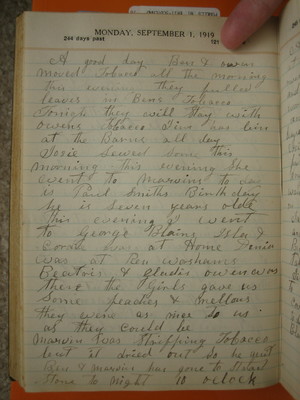 MONDAY, SEPTEMBER 1, 1919
244 days past
121
A good day Ben & owen
moved Tobaco all the morning
this evening they pulled
leaves in Bens Tobaco
Tonight they will stay with
owens tobacco Jim has bin
at the Barns all day
Josie Sewed Some this
morning this evening She
went to Marvins to day
is Paul Smiths Birth day
he is Seven years old
this evening I went
to George
was at Home
was at Ben
Beatris & gladis owen was
there the Girls gave us
Some peaches & mellons
they were as nice to us
as they could be
marvin was Stripping Tobacco
but it dried out so he quit
Ben & marvin has gone to
Stone to night 10 oclock